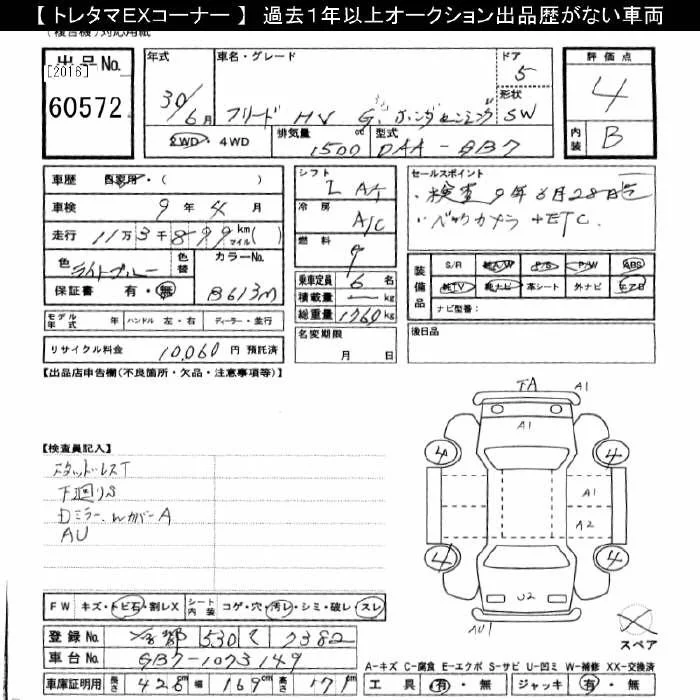 【 トレタマEXコーナー 】 過去1年以上オークション出品歴がない車両
出品No.
[2016]
60572
年式
30/6月
車名・グレード
フリード HV G. ホンダセンシング
ドア
5
形状
SW
評価点
4
内装
B
2WD・4WD
排気量
1500
型式
DAA-GB7
車歴
自家用・( )
車検
9年4月
走行
11万3千899 km マイル( )
色
ライトブルー
色替
カラーNo.
B613M
保証書 有・無
シフト
I AT
冷房
A/C
燃料
乗車定員 6名
積載量 kg
総重量 1760kg
名変期限
月 日
セールスポイント
・検査 9年6月28日
・バックカメラ +ETC
装備品
S/R 純A/W P/S P/W ABS
純TV 純ナビ 革シート 外ナビ エアB
ナビ型番:
後日品
モデル年式 年 ハンドル 左・右 ディーラー・並行
リサイクル料金 10,060円 預託済
【出品店申告欄(不良箇所・欠品・注意事項等)】
【検査員記入】
スタッドレスT
下廻りS
Dミラー.WカバーA
AU
TA
A1
A1
4
4
A1
A2
4
4
U2
AU1
スペア
FW キズ・トビ石・割レX
シート内装 コゲ・穴・汚レ・シミ・破レ・スレ
登録No.
530
7382
車台No.
GB7-1073149
車庫証明用
長さ 426cm 幅 169cm 高さ 171
A-キズ C-腐食 E-エクボ S-サビ U-凹ミ W-補修 XX-交換済
工具 有・無 ジャッキ 有・無